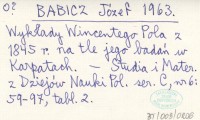 O? BABICZ Józef 1963.
Wykłady Wincentego Pola z
1845 r. na tle jego badań w
Karpatach. — Studia i Mater.
z Dziejów Nauki Pol. ser. C, nr 6:
59-97, tabl. 2.